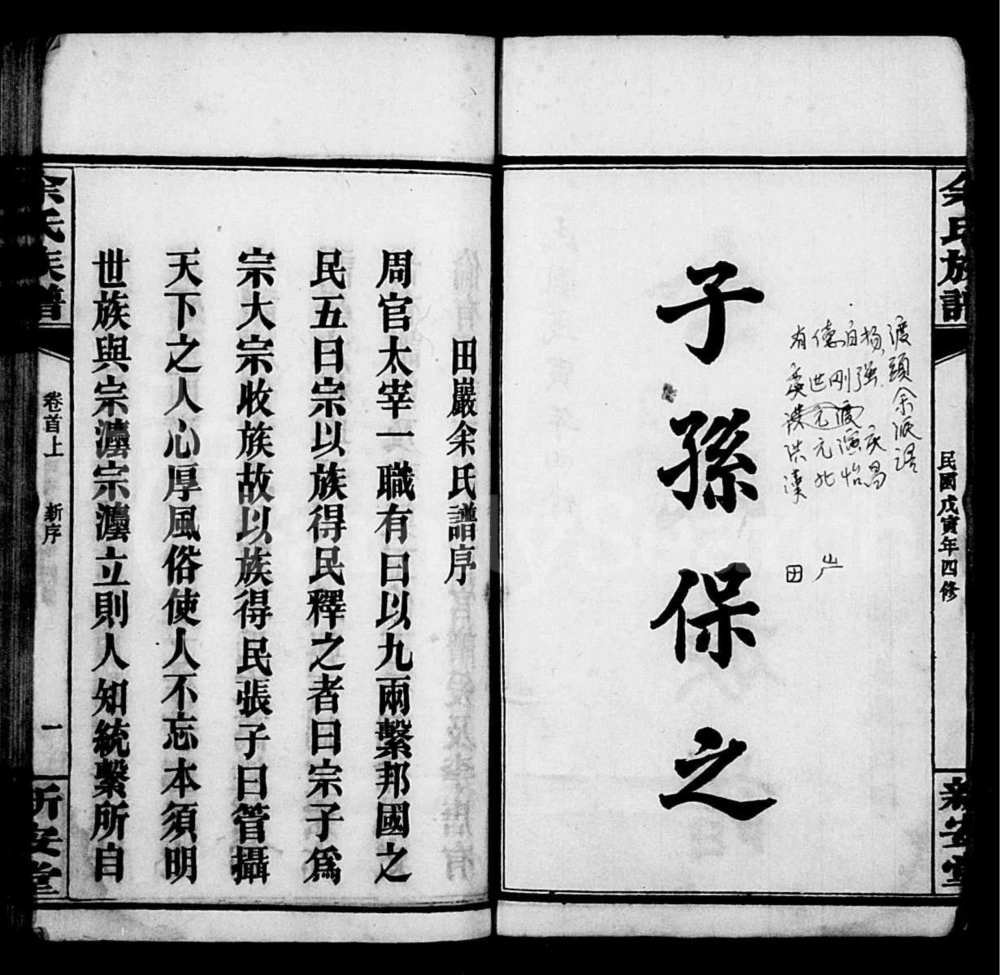 余氏族譜
民國戊寅年四修
新安堂
渡頭余派語
子孫保之
田巖余氏譜序
周官太宰一職有曰以九兩繫邦國之
民五曰宗以族得民釋之者曰宗子爲
宗大宗收族故以族得民張子曰管攝
天下之人心厚風俗使人不忘本須明
世族與宗灋宗灋立則人知統繫所自
余氏族譜
卷首上
新序
一
新安堂